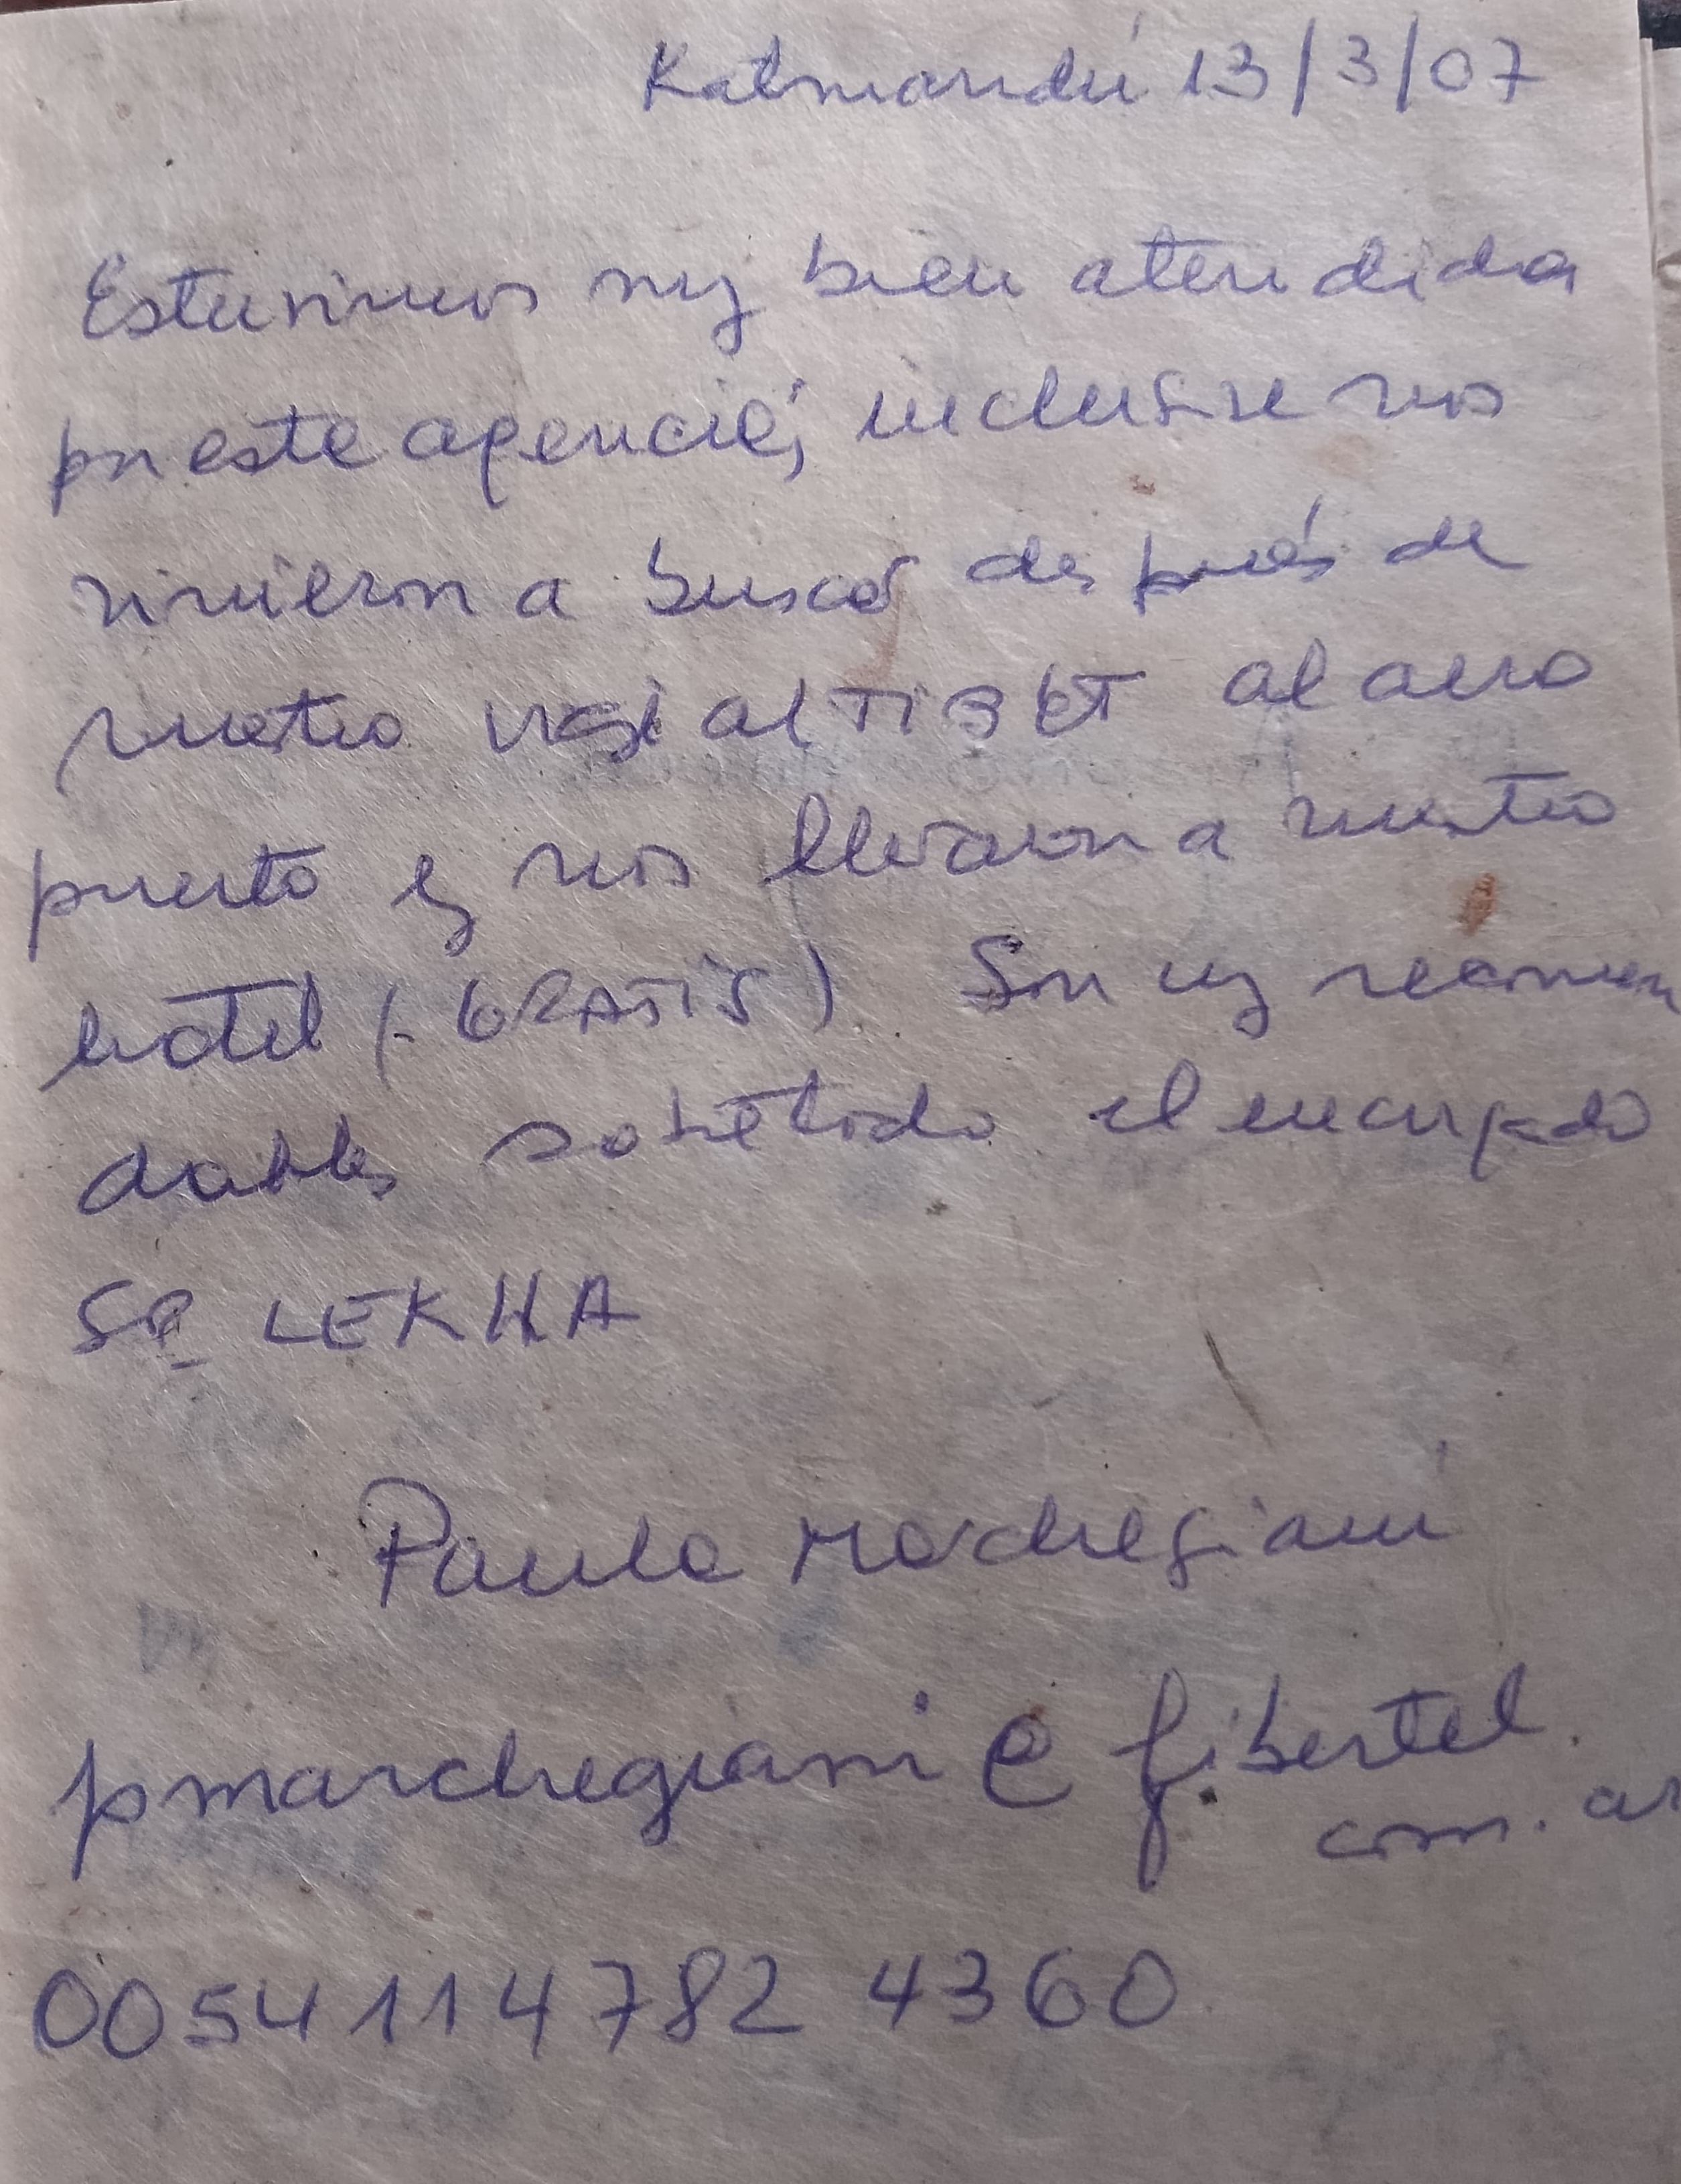 Katmandú 13/3/07
Estuvimos muy bien atendidos
por esta agencia, inclusive nos
vinieron a buscar después de
nuestro viaje al TIBET al aero
puerto y nos llevaron a nuestro
hotel (GRATIS) Son muy recomen
dables sobre todo el encargado
SR LEKHA
Paula Marchegiani
pmarchegiani@fibertel.
com.ar
0054114782 4360